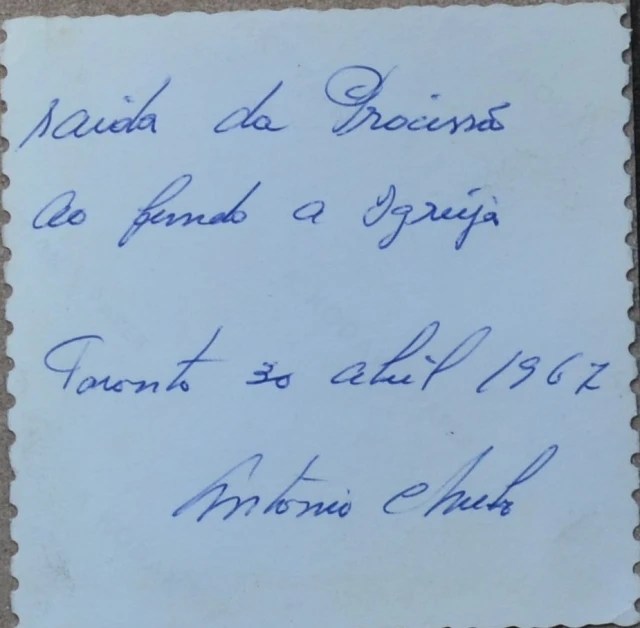 saida da Procissão
ao fundo a Igreja
Toronto 30 abril 1967
António